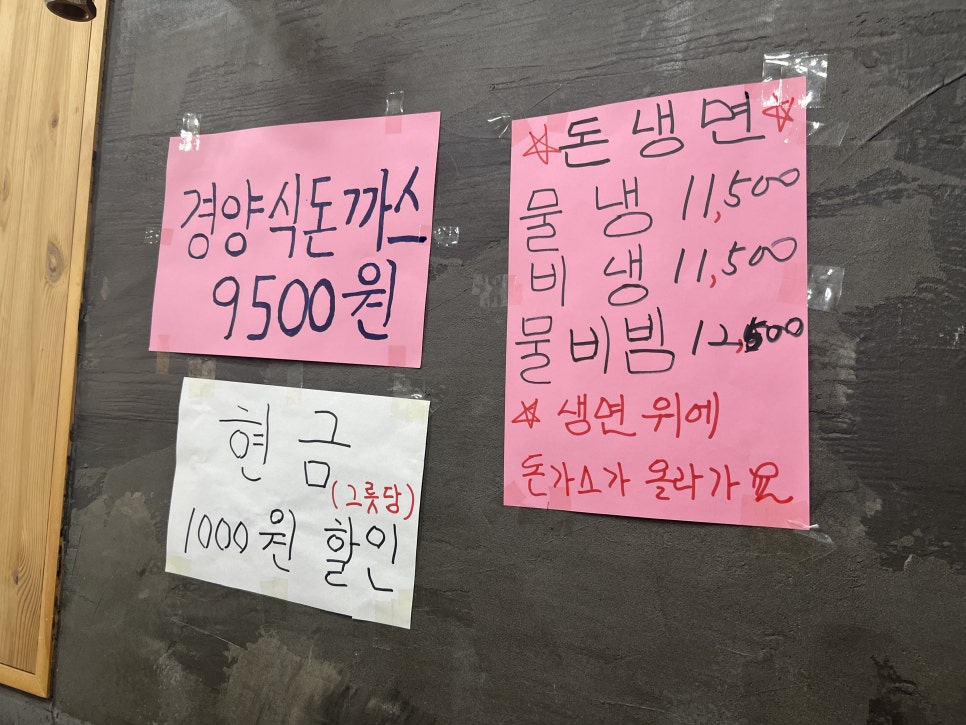 경양식돈까스
9500원
현금
(그릇당)
1000원 할인
☆돈냉면☆
물냉 11,500
비냉 11,500
물비빔 12,500
☆냉면위에
돈가스가 올라가요